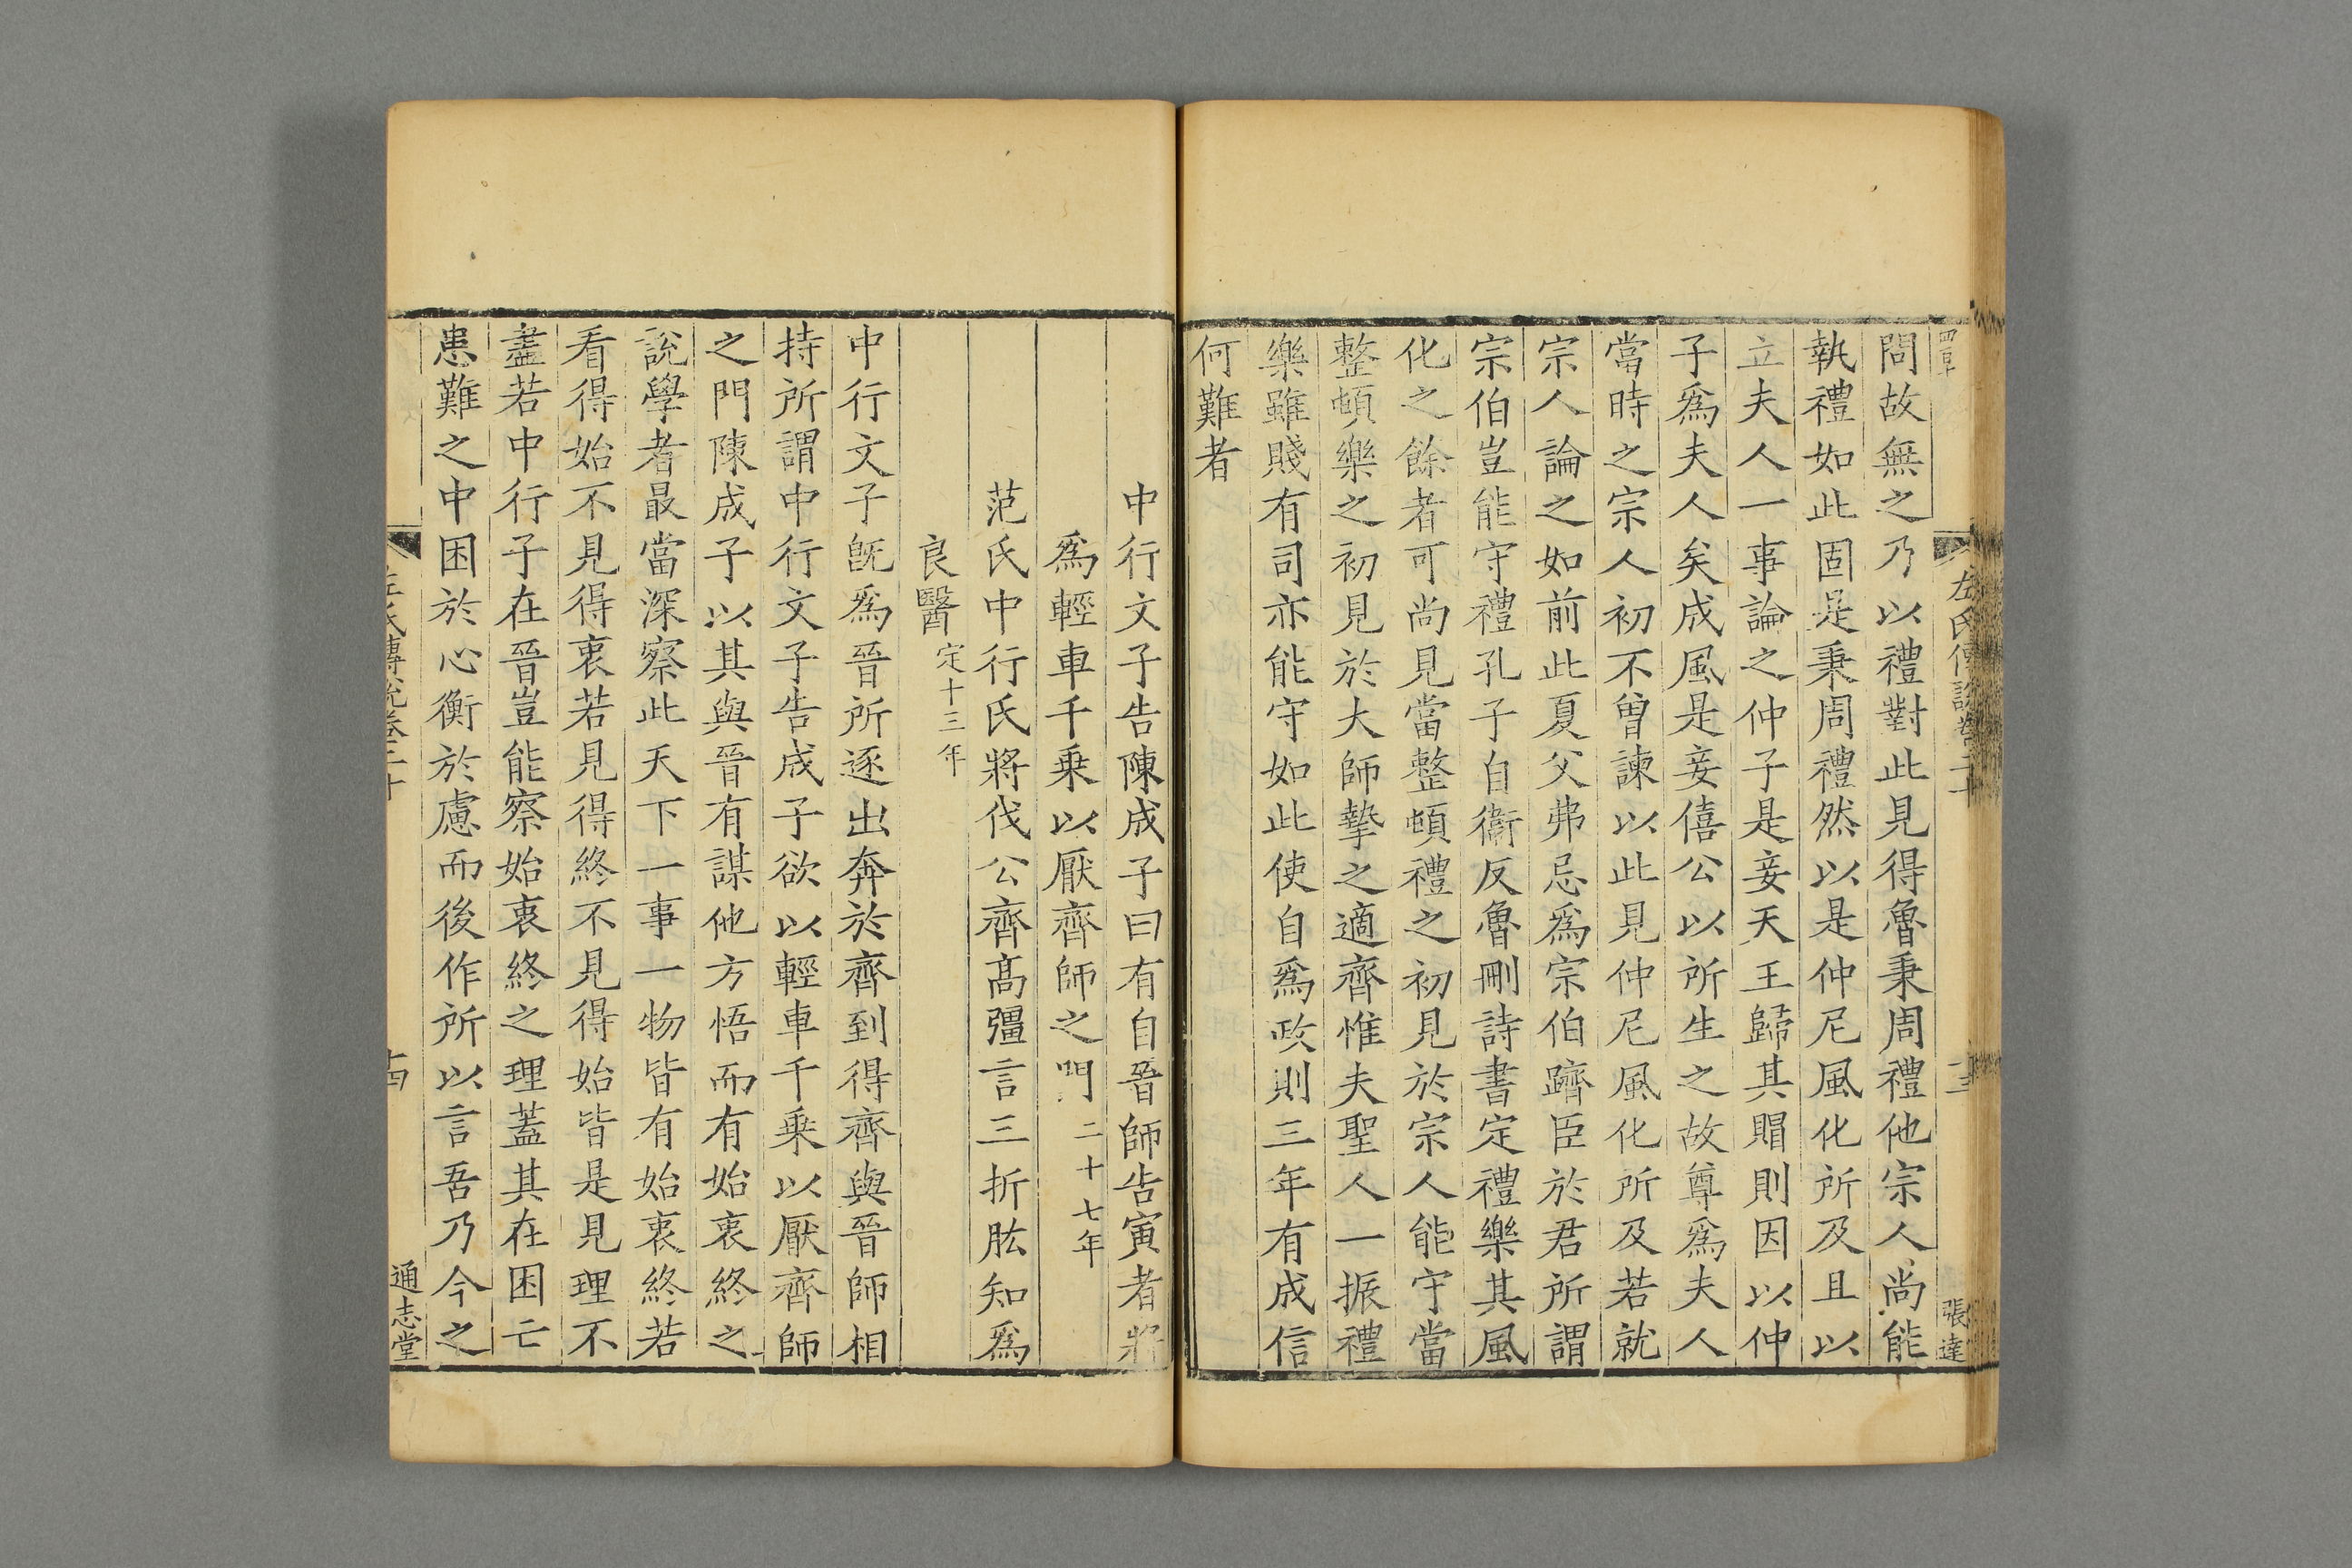 左氏傳說卷二十
十三
張達
問故無之乃以禮對此見得魯秉周禮他宗人尚能
執禮如此固是秉周禮然以是仲尼風化所及且以
立夫人一事論之仲子是妾天王歸其賵則因以仲
子爲夫人矣成風是妾僖公以所生之故尊爲夫人
當時之宗人初不曾諫以此見仲尼風化所及若就
宗人論之如前此夏父弗忌爲宗伯躋臣於君所謂
宗伯豈能守禮孔子自衞反魯刪詩書定禮樂其風
化之餘者可尚見當整頓禮之初見於宗人能守當
整頓樂之初見於大師摯之適齊惟夫聖人一振禮
樂雖賤有司亦能守如此使自爲政則三年有成信
何難者
中行文子告陳成子曰有自晉師告寅者將
爲輕車千乗以厭齊師之門二十七年
范氏中行氏將伐公齊髙彊言三折肱知爲
良醫定十三年
中行文子旣爲晉所逐出奔於齊到得齊與晉師相
持所謂中行文子告成子欲以輕車千乗以厭齊師
之門陳成子以其與晉有謀他方悟而有始衷終之
說學者最當深察此天下一事一物皆有始衷終若
看得始不見得衷若見得終不見得始皆是見理不
盡若中行子在晉豈能察始衷終之理蓋其在困亡
患難之中困於心衡於慮而後作所以言吾乃今之
左氏傳說卷二十
十四
通志堂